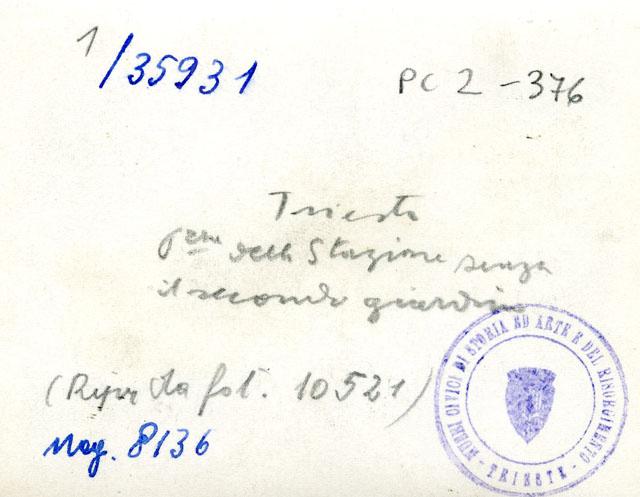 1/35931
PC 2-376
Trieste
della Stazione senza
il secondo giardino
(Repr da fot. 10521)
8136
MUSEI CIVICI DI STORIA ED ARTE E DEL RISORGIMENTO
- TRIESTE -